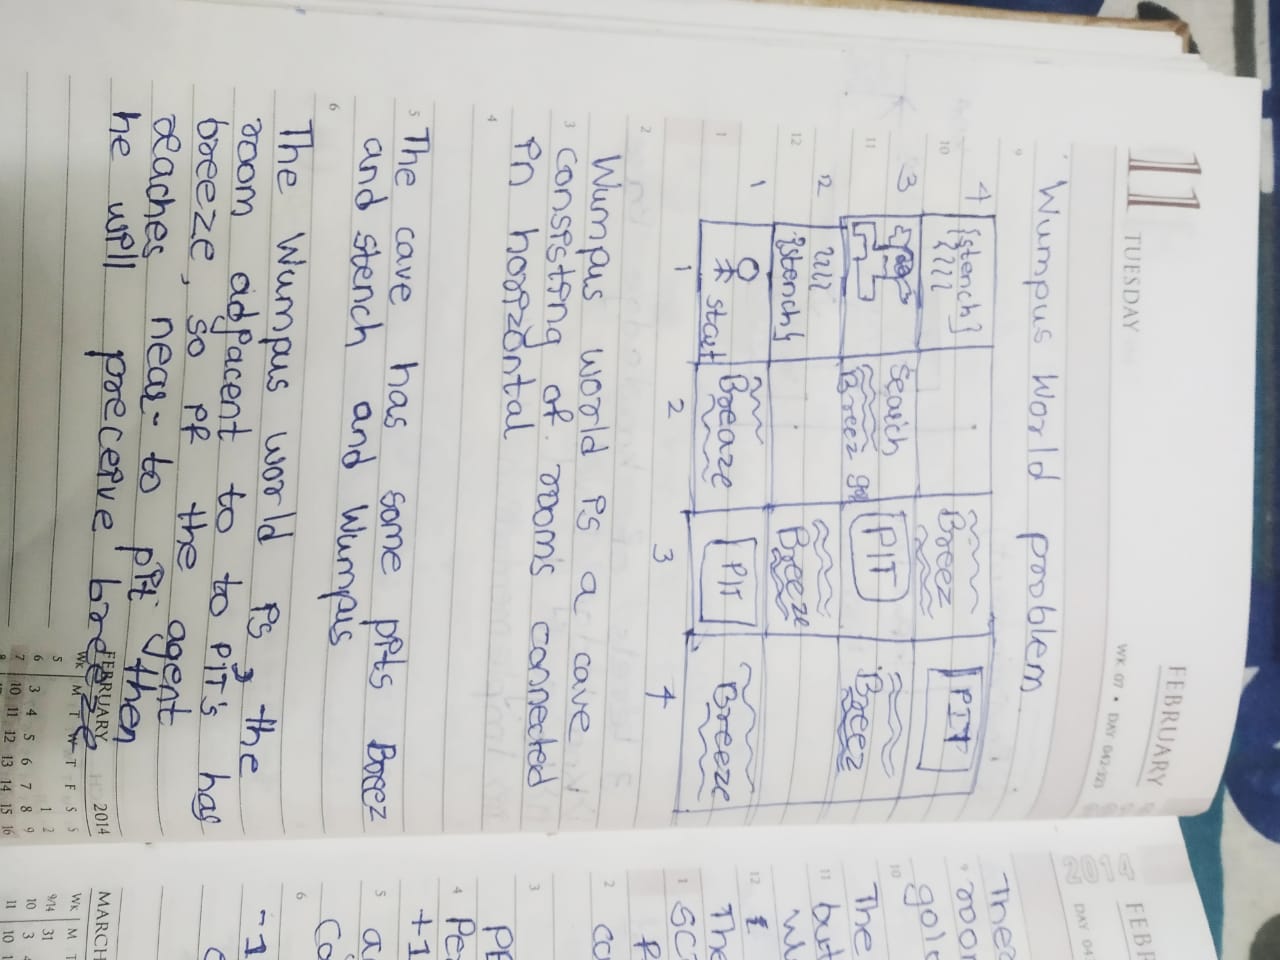 11
TUESDAY
FEBRUARY
WK 07 • DAY 042-323
Wumpus World problem
4 {stench} Breez PIT
3 Search Breez PIT Breez
2 {stench} Breeze
1 start Breaze PIT Breeze
1 2 3 4
Wumpus world is a cave
consisting of room's connected
in horizontal
The cave has some pits Breez
and stench and Wumpis
The Wumpus world is, the
room adjacent to to PIT's has
breeze, so if the agent
reaches near to pit then
he will preceive breeze
FEBRUARY 2014
Wk M T W T F S S
5 1 2
6 3 4 5 6 7 8 9
7 10 11 12 13 14 15 16
8
2014
FEBR
DAY 04
room
gold
The
but
The
-1
MARCH
Wk M T
9/14 31
10 3 4
11 10 1